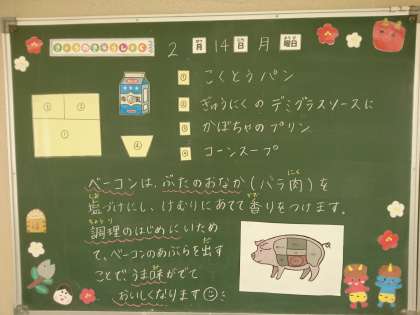 きょうのきゅうしょく
2月14日月曜日
① こくとうパン
② ぎゅうにくのデミグラスソースに
③ かぼちゃのプリン
④ コーンスープ
ベーコンは、ぶたのおなか(バラ肉)を
塩づけにし、けむりにあてて香りをつけます。
調理のはじめにいため
て、ベーコンのあぶらを出す
ことで、うま味がでて
おいしくなります